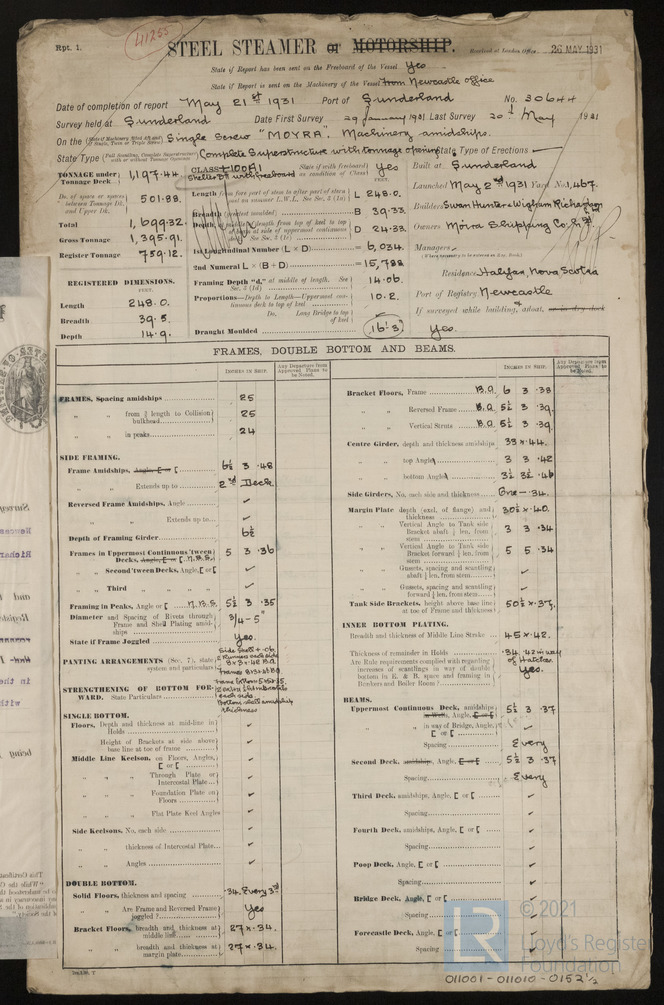 Rpt. 1.
41255
STEEL STEAMER or MOTORSHIP.
Received at London Office 26 MAY 1931
State if Report has been sent on the Freeboard of the Vessel Yes
State if Report is sent on the Machinery of the Vessel from Newcastle office
Date of completion of report May 21st 1931 Port of Sunderland No. 30644
Survey held at Sunderland Date First Survey 29 January 1931 Last Survey 20th May 1931
On the Single Screw "MOYRA". Machinery amidships.
State Type Complete Superstructure with tonnage opening State Type of Erections
TONNAGE under Tonnage Deck 1,197.44
Do. of space or spaces between Tonnage Dk. and Upper Dk. 501.88
Total 1,699.32
Gross Tonnage 1,395.91
Register Tonnage 759.12
REGISTERED DIMENSIONS.
FEET.
Length 248.0
Breadth 39.5
Depth 14.9
CLASS +100A1
Shelter Dk with freeboard
State if with freeboard as condition of Class Yes
FEET.
L 248.0
B 39.33
D 24.33
1st Longitudinal Number (L × D) = 6,034
2nd Numeral L × (B + D) = 15,788
Framing Depth "d," at middle of length. See Sec. 3 (1d) 14.06
Proportions—Depth to Length—Uppermost continuous deck to top of keel 10.2
Do. Long Bridge to top of keel
Draught Moulded 16'3"
Built at Sunderland
Launched May 2nd 1931 Yard No. 1,467
Builders Swan Hunter & Wigham Richardson
Owners Moira Shipping Co.
Managers
Residence Halifax, Nova Scotia
Port of Registry Newcastle
If surveyed while building, afloat, or in dry dock
Yes.
FRAMES, DOUBLE BOTTOM AND BEAMS.
INCHES IN SHIP.
Any Departure from Approved Plans to be Noted.
INCHES IN SHIP.
Any Departure from Approved Plans to be Noted.
FRAMES, Spacing amidships 25
" " from 3/5 length to Collision bulkhead 25
" " in peaks 24
SIDE FRAMING.
Frame Amidships, Angle, [ or [ 6½ 3 .48
" " Extends up to 2nd Deck
Reversed Frame Amidships, Angle
" " Extends up to
Depth of Framing Girder 6½
Frames in Uppermost Continuous 'tween Decks, Angle, [ or [ 5 3 .36
" " Second 'tween Decks, Angle, [ or [
" " Third " "
Framing in Peaks, Angle or [ 5½ 3 .35
Diameter and Spacing of Rivets through Frame and Shell Plating amidships 3/4 - 5"
State if Frame Joggled Yes.
PANTING ARRANGEMENTS (Sec. 7), state system and particulars
STRENGTHENING OF BOTTOM FORWARD. State Particulars
SINGLE BOTTOM.
Floors, Depth and thickness at mid-line in Holds
Height of Brackets at side above base line at toe of frame
Middle Line Keelson, on Floors, Angles, [ or [
" " Through Plate or Intercostal Plate
" " Foundation Plate on Floors
" " Flat Plate Keel Angles
Side Keelsons, No. each side
" " thickness of Intercostal Plate
" " Angles
DOUBLE BOTTOM.
Solid Floors, thickness and spacing .34. Every 3rd
" " Are Frame and Reversed Frame joggled? Yes
Bracket Floors, breadth and thickness at middle line 27 × .34.
" " breadth and thickness at margin plate 27 × .34.
Bracket Floors, Frame B.A. 6 3 .38
" " Reversed Frame B.A. 5½ 3 .39
" " Vertical Struts B.A. 5½ 3 .39
Centre Girder, depth and thickness amidships 33 × .44.
" " top Angle 3 3 .42
" " bottom Angle 3½ 3½ .46
Side Girders, No. each side and thickness One - .34.
Margin Plate depth (excl. of flange) and thickness 30½ × .40.
" " Vertical Angle to Tank side Bracket abaft ¼ len. from stem 3 3 .34
" " Vertical Angle to Tank side Bracket forward ¼ len. from stem 5 5 .34
" " Gussets, spacing and scantling abaft ¼ len. from stem
" " Gussets, spacing and scantling forward ¼ len. from stem
Tank Side Brackets, height above base line at toe of Frame and thickness 50½ × .37.
INNER BOTTOM PLATING.
Breadth and thickness of Middle Line Strake 45 × .42.
Thickness of remainder in Holds .34 .42 in way of Hatches
Are Rule requirements complied with regarding increases of scantlings in way of double bottoms in E. & B. space and framing in Bunkers and Boiler Room? Yes.
BEAMS.
Uppermost Continuous Deck, amidships in Wells, Angle, [ or [ 5½ 3 .37
" " in way of Bridge, Angle, [ or [
Spacing Every
Second Deck, amidships, Angle, [ or [ 5½ 3 .37
Spacing Every
Third Deck, amidships, Angle, [ or [
Spacing
Fourth Deck, amidships, Angle, [ or [
Spacing
Poop Deck, Angle, [ or [
Spacing
Bridge Deck, Angle, [ or [
Spacing
Forecastle Deck, Angle, [ or [
Spacing
LR
© 2021
Lloyd's Register
Foundation
011001 - 011010 - 0152 ½